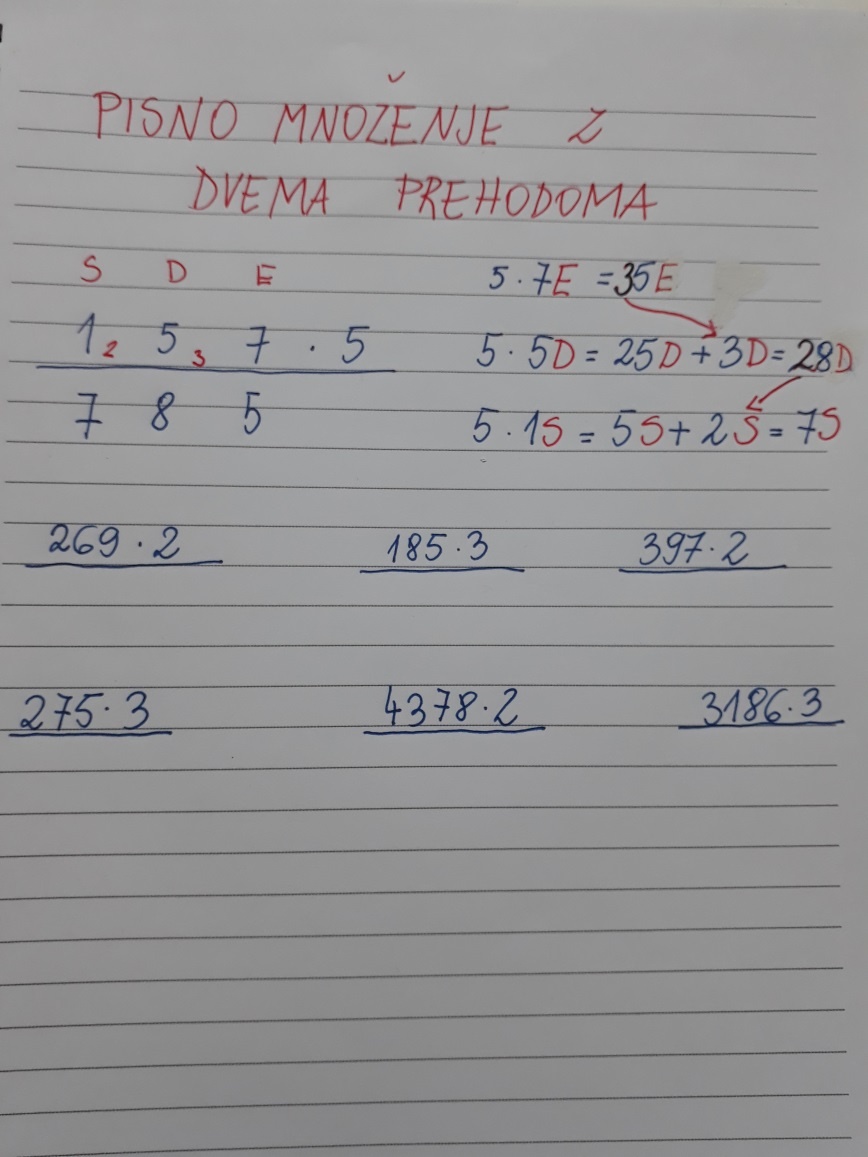 PISNO MNOŽENJE Z
DVEMA PREHODOMA
S D E
5 · 7E = 35E
1 2 5 3 7 · 5
5 · 5D = 25D + 3D = 28D
7 8 5
5 · 1S = 5S + 2S = 7S
269 · 2 185 · 3 397 · 2
275 · 3 4378 · 2 3186 · 3